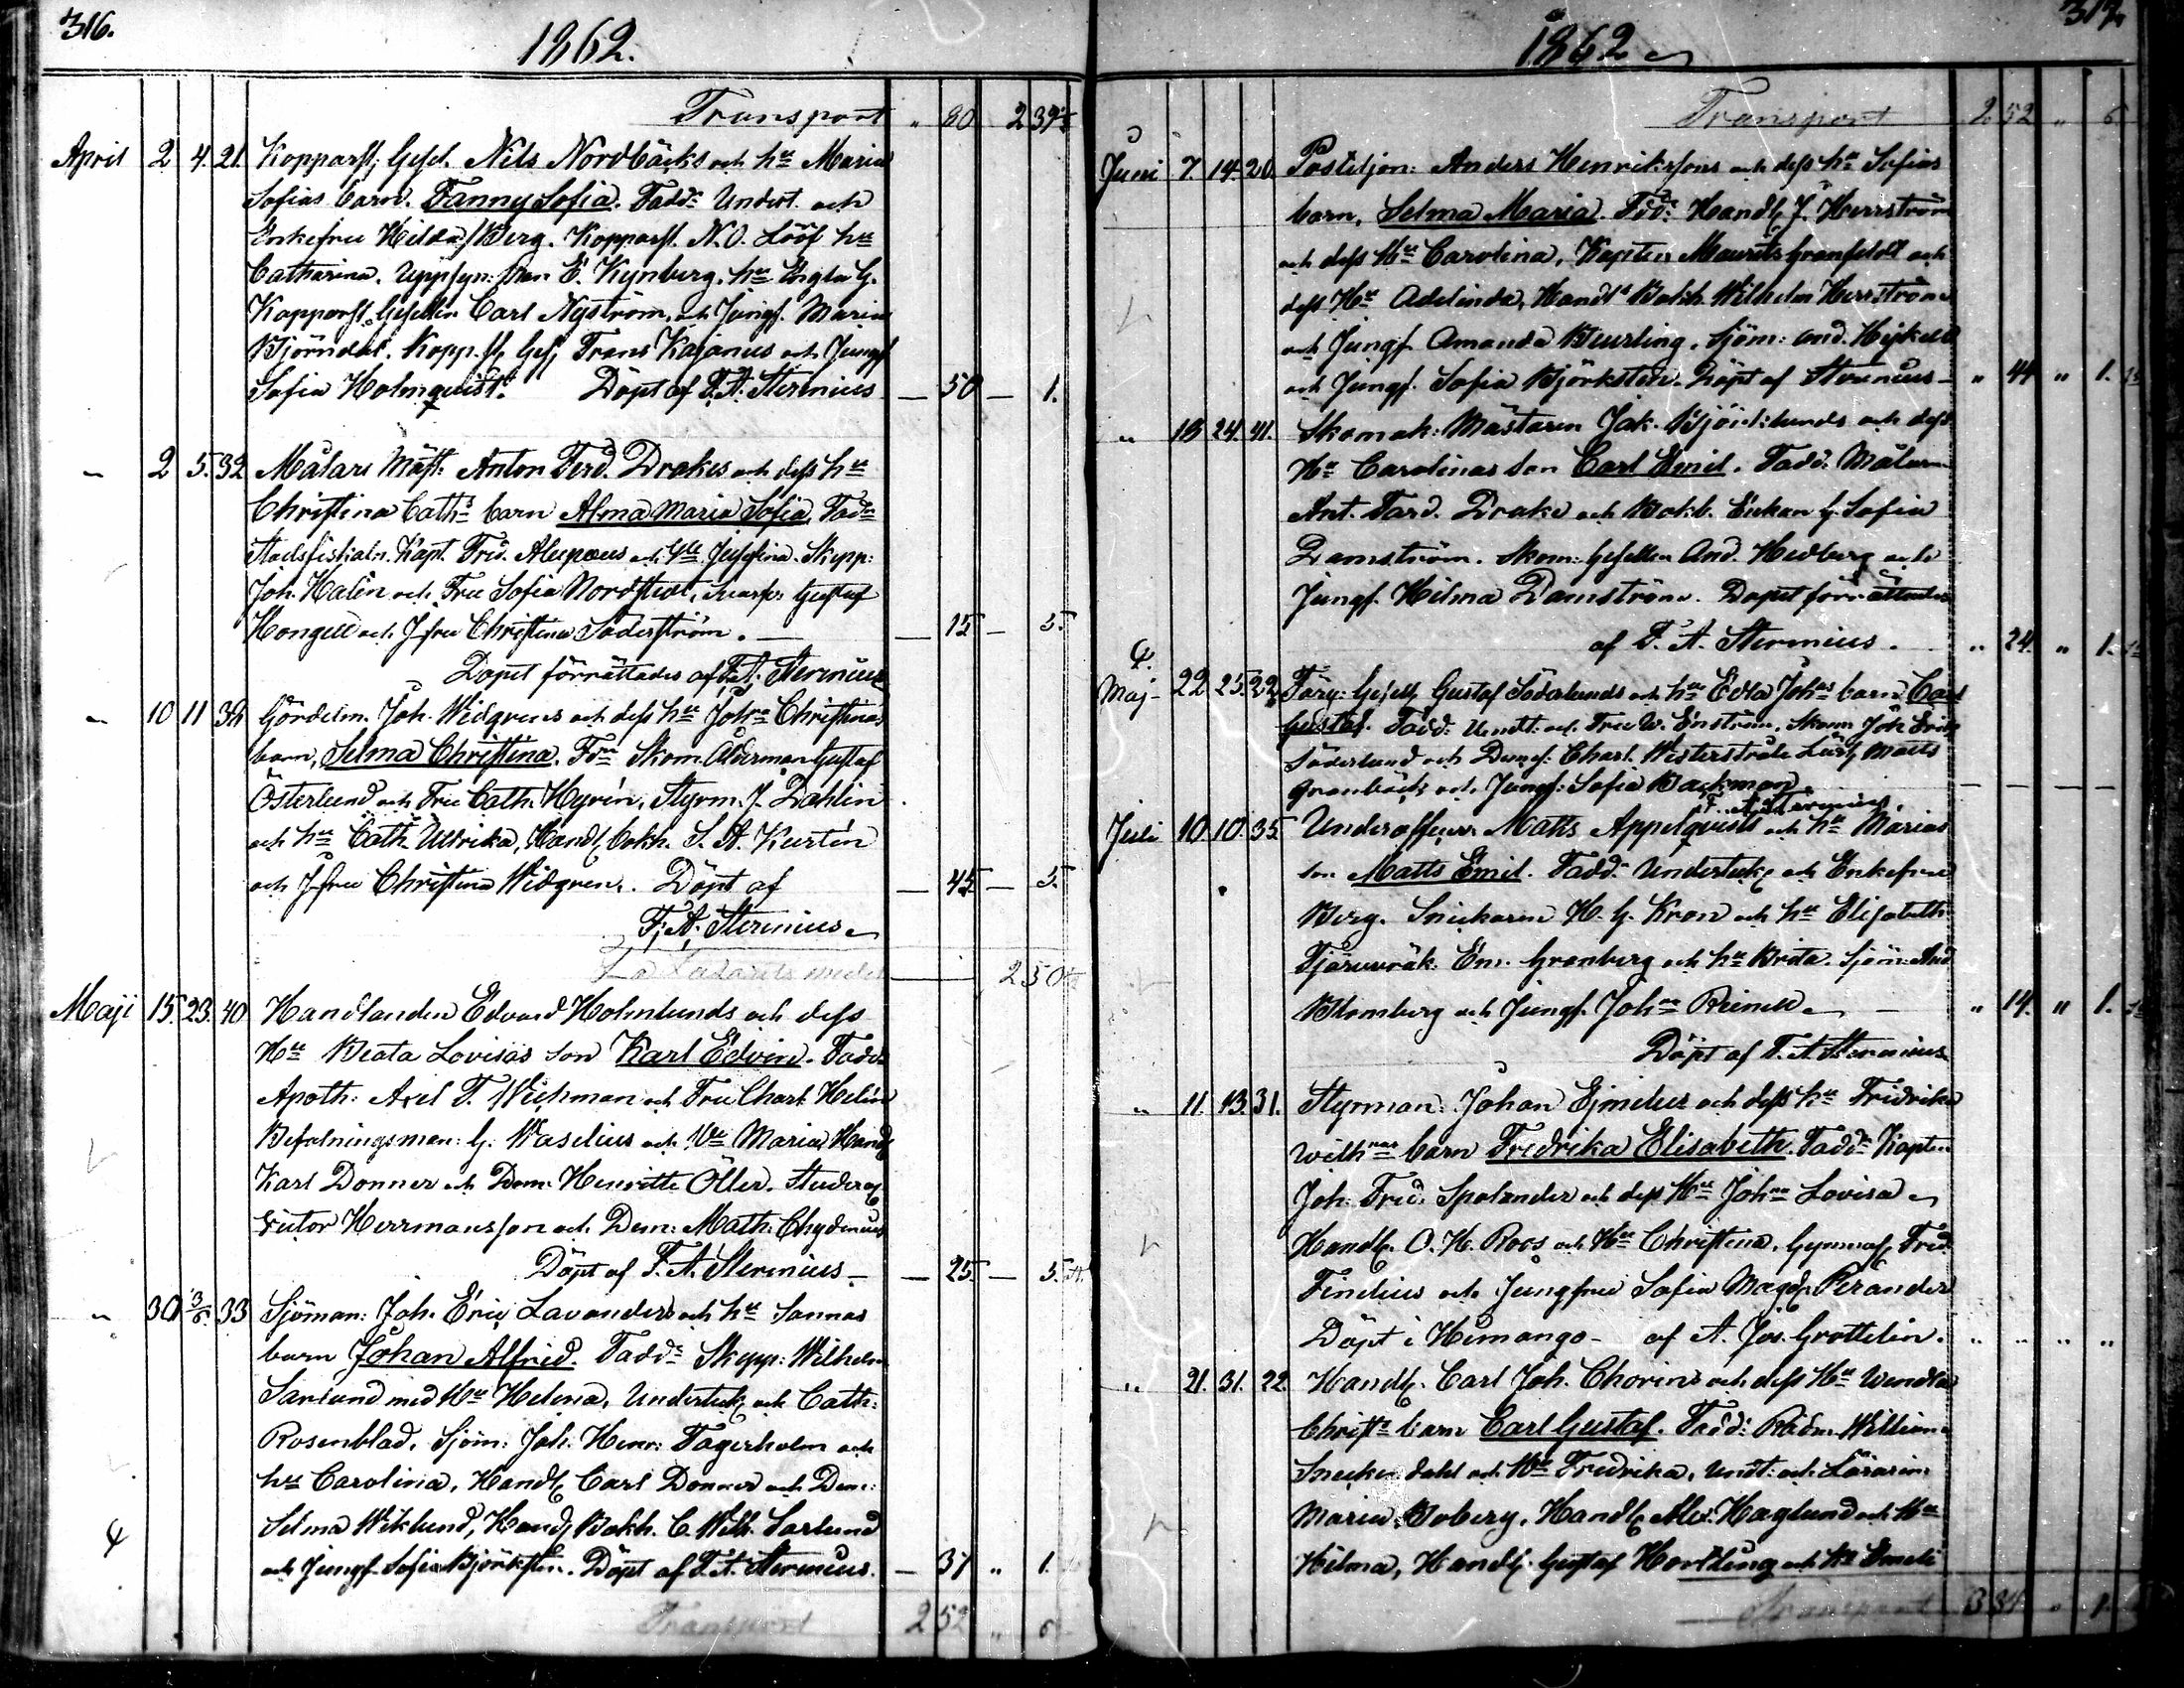 316.
1862.
Transport " 80 - 2 39
April 2 4. 21. Kopparsl. Gesel. Nils Nordbäcks och hu Maria
Sofias barn. Fanny Sofia. Fadd: Undert. och
Enkefru Hilda Berg. Kopparsl. N.O. Lööf hu
Catharina. Uppsyn: E. Kynberg. hu G.
Kopparsl. Gesellen Carl Nyström, och Jungf. Maria
Björndal. Kopp.sl. Ges. Frans Kajanus och Jungf
Sofia Holmquist. Döpt af F. A. Stermius — 50 — 1.
" 2 5. 32 Målare Mäst. Anton Ferd. Drakes och dess hu
Christina Caths barn Alma Maria Sofia. Fadd
Stadsfiskaln. Kapt. Frid. Alcepæus och Josefina. Skepp:
Joh. Halin och Fru Sofia Nordstedt, Gustaf
Hongell och Jfru Christina Söderström. — 15 — 5.
Dopet förrättades af F. A. Stermius
" 10 11 32 Gördelm. Joh. Widgrens och dess hu Johna Christinas
barn, Selma Christina. Skom. Ålderman Gustaf
Österlund och Fru Cath. Hyrén, Styrm. J. Dahlin
och hu Cath. Ullrika, Handl. bokh. S. A. Kurtén
och Jfru Christina Widgren. Döpt af — 45 — 5.
F. A. Stermius
2 50
Maji 15. 23. 40 Handlanden Edvard Holmlunds och dess
Hu Beata Lovisas son Karl Edvin. Fadd:
Apoth: Axel F. Wichman och Fru Charl. Helin
Befalningsman: G. Waselius och Hu Maria Handl
Karl Donner och Dem. Henriette Öller. Studer.
Victor Herrmansson och Dem: Math: Chydenius
Döpt af F. A. Stermius — 25 — 5.
" 30 3/6. 33 Sjöman: Joh. Eric Lavanders och hu Sannas
barn Johan Alfrid. Fadd: Skepp: Wilhelm
Sarlund med Hu Helena, Underteck. och Cath:
Rosenblad. Sjöm: Joh. Henr: Fagerholm och
hu Carolina, Handl. Carl Donner och Dem:
Selma Wiklund, Handl. Bokh. C. Wilh. Sarlund
och Jungf. Sofia Björksten. Döpt af F. A. Stermius. — 37 " 1.
Transport 2 52 " 6
317.
1862
Transport 2 52 " 6.
Juni 7. 14. 20. Postiljon: Anders Henrikssons och dess hu Sofias
barn, Selma Maria. Fdd: Handl. J. Herrström
och dess Hu Carolina, Kapten Maurits Granfeldt och
dess Hu Adelinda, Handls Bokh. Wilhelm Herrström
och Jungf. Amanda Beurling. Sjöm: And. Hykell
och Jungf. Sofia Björksten. Döpt af Stermius — " 44 " 1.
" 18 24 41. Skomak: Mästaren Jak. Björklunds och dess
Hu Carolinas son Carl Emil. Fadd: Målaren
Ant. Ferd. Drake och Bokb. Enkan G. Sofia
Damström. Skom: Gesellen And. Hedberg och
Jungf. Hilma Damström. Dopet förrättades
af F. A. Stermius. " 24. " 1.
Maj 22 25. 22 Färg: Gesell. Gustaf Söderlunds och hu Edla Johas barn Carl
Gustaf. Fadd: Undt. och Fru W. Enström. Skom Joh. Erik
Söderlund och Demf: Charl. Westerstråle Matts
Granbäck och Jungf: Sofia Backman
F. A. Stermius.
Juli 10. 10. 35 Underofficern Matts Appelqvists och hu Marias
son Matts Emil. Fadd: Underteck. och Enkefru
Berg. Snickaren H. G. Kron och hu Elisabeth
Tjäruvräk. Em. Granberg och hu Brita. Sjöm: And
Blomberg och Jungf. Johna — " 14. " 1.
Döpt af F. A. Stermius
" 11. 13. 31. Styrman: Johan Ejmelus och dess hu Fridrika
Wilhnas barn Fredrika Elisabeth. Fadd: Kapten
Joh. Frid. Spolander och dess Hu Johna Lovisa
Handl. O. H. Roos och Hu Christina. Gymnas. Fred
Finelius och Jungfru Sofia Magd. Perander
Döpt i Himango - af A. Jos. Grottelin. " " " "
" 21. 31. 22 Handl. Carl Joh. Chorins och dess Hu Wendla
Christs barn Carl Gustaf. Fadd: Rådm William
Snickerdahl och Hu Fredrika, undt: och Lärarin:
Maria Boberg, Handl. Alex. Haglund och Hu
Hilma, Handl. Gustaf Hortling och Hu Emeli
Transport 3 34 " 1.